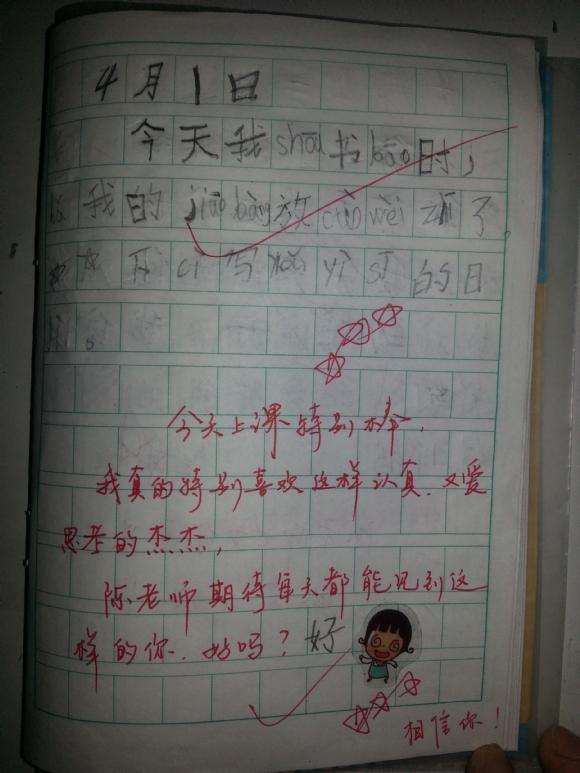 4月1日
今天我shōu书bāo时，
我的jiāo bàng放cuò wèi了。
写yì sī的日
。
今天上课特别棒，
我真的特别喜欢这样认真、又爱
思考的杰杰，
陈老师期待每天都能见到这
样的你，好吗？好
相信你！